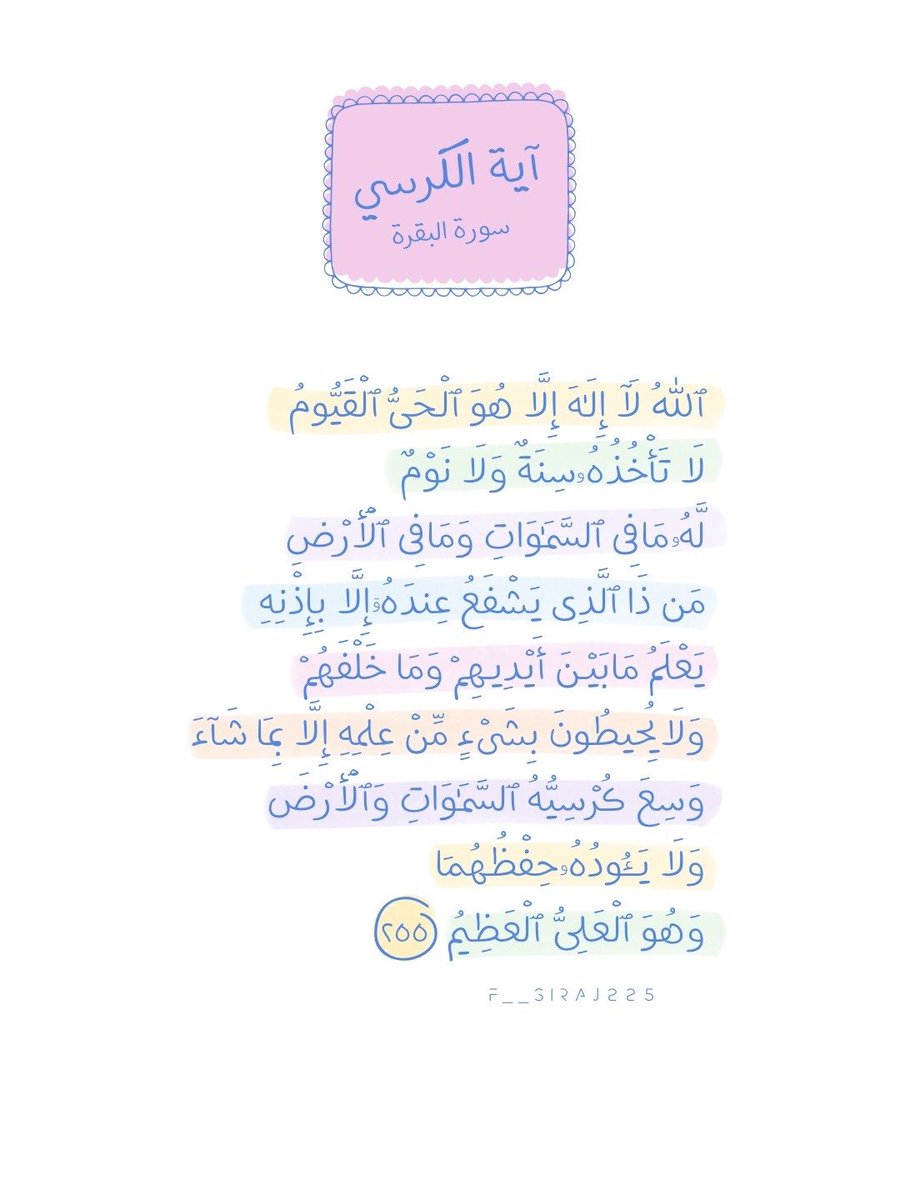 آية الكرسي
سورة البقرة
ٱللَّهُ لَآ إِلَٰهَ إِلَّا هُوَ ٱلْحَىُّ ٱلْقَيُّومُ
لَا تَأْخُذُهُۥ سِنَةٌ وَلَا نَوْمٌ
لَّهُۥ مَا فِى ٱلسَّمَٰوَاتِ وَمَا فِى ٱلْأَرْضِ
مَن ذَا ٱلَّذِى يَشْفَعُ عِندَهُۥٓ إِلَّا بِإِذْنِهِ
يَعْلَمُ مَا بَيْنَ أَيْدِيهِمْ وَمَا خَلْفَهُمْ
وَلَا يُحِيطُونَ بِشَىْءٍ مِّنْ عِلْمِهِ إِلَّا بِمَا شَآءَ
وَسِعَ كُرْسِيُّهُ ٱلسَّمَٰوَاتِ وَٱلْأَرْضَ
وَلَا يَـُٔودُهُۥ حِفْظُهُمَا
وَهُوَ ٱلْعَلِىُّ ٱلْعَظِيمُ ٢٥٥
F__SIRAJ225